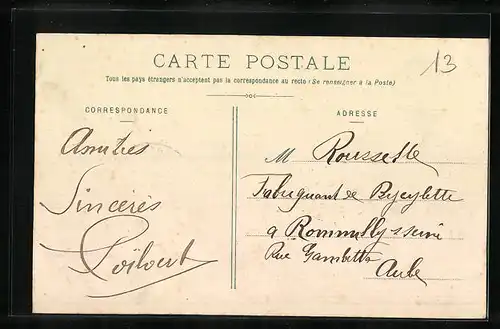 CARTE POSTALE
13
Tous les pays étrangers n'acceptent pas la correspondance au recto (Se renseigner à la Poste)
CORRESPONDANCE
Amitiés
Sincères
ADRESSE
M Rousselle
Fabriquant de Bycyclette
a Rommilly s seine
Rue Gambetta
Aube